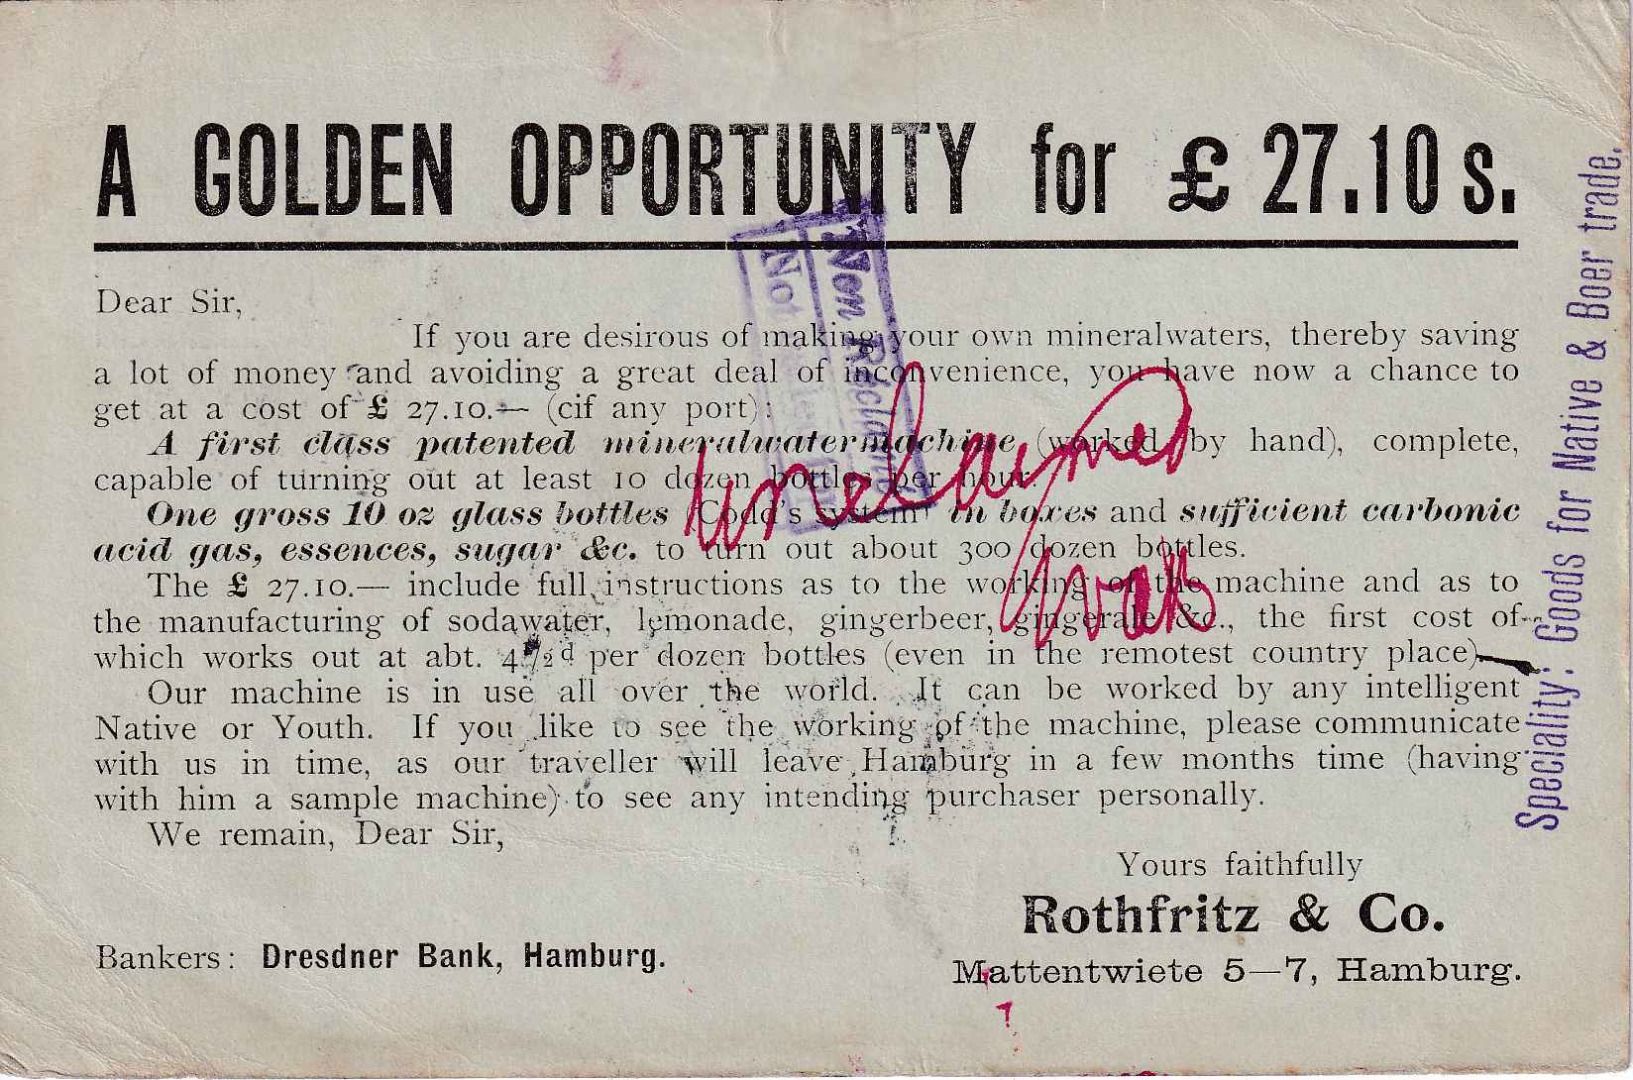 A GOLDEN OPPORTUNITY for £ 27.10 s.
Dear Sir,
If you are desirous of making your own mineralwaters, thereby saving
a lot of money and avoiding a great deal of inconvenience, you have now a chance to
get at a cost of £ 27.10.— (cif any port):
A first class patented mineralwatermachine (worked by hand), complete,
capable of turning out at least 10 dozen bottles per hour
One gross 10 oz glass bottles (Codd's system) in boxes and sufficient carbonic
acid gas, essences, sugar &c. to turn out about 300 dozen bottles.
The £ 27.10.— include full instructions as to the working of the machine and as to
the manufacturing of sodawater, lemonade, gingerbeer, gingerale &c., the first cost of
which works out at abt. 4 1/2 d per dozen bottles (even in the remotest country place)
Our machine is in use all over the world. It can be worked by any intelligent
Native or Youth. If you like to see the working of the machine, please communicate
with us in time, as our traveller will leave Hamburg in a few months time (having
with him a sample machine) to see any intending purchaser personally.
We remain, Dear Sir,
Yours faithfully
Rothfritz & Co.
Bankers: Dresdner Bank, Hamburg.
Mattentwiete 5—7, Hamburg.
Speciality: Goods for Native & Boer trade.
Non Réclamé
Not
Unclaymed